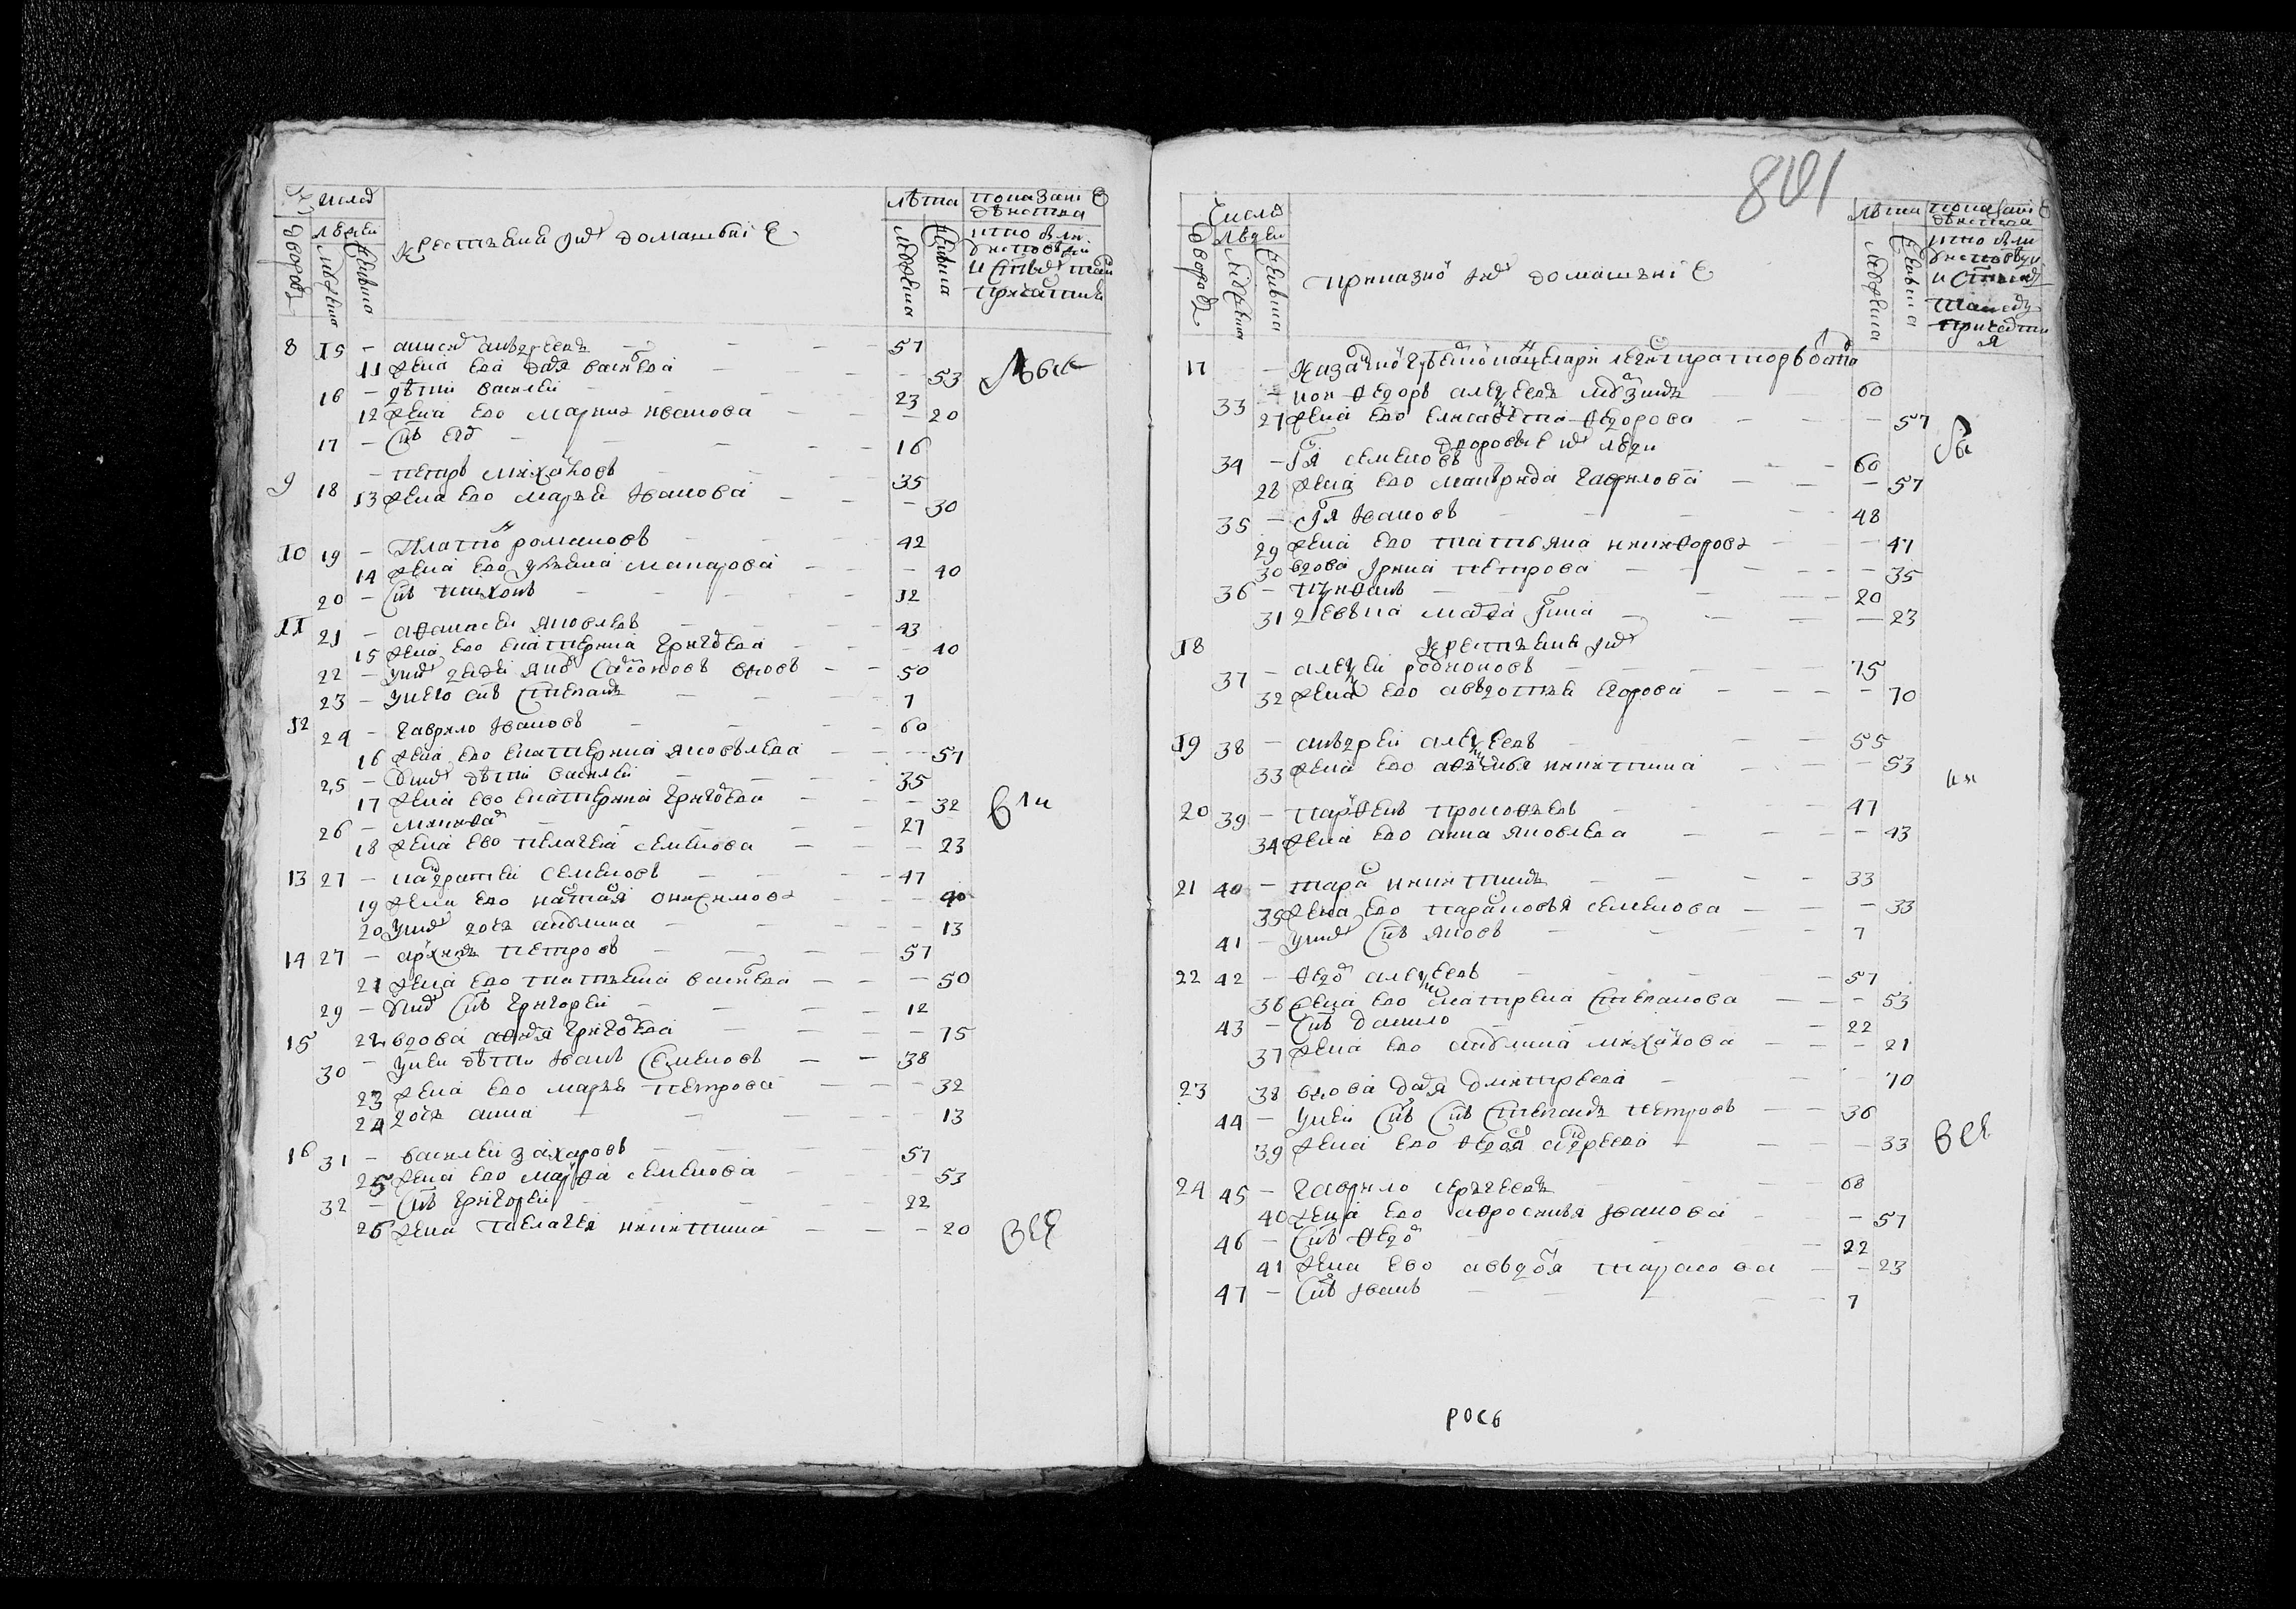 Число
дворовъ
людей
мужеска
женска
крестьяне и их домашние
лѣта
мужеска
женска
показание
действа
кто были
у исповѣди
и св. таин
причастии
8 15 – андреевъ – 57
11 жена ево дарья васильева – 53
16 – дѣти василеи – 23
12 жена ево марина иванова – 20
17 – сынъ – 16
9 18 – петръ михаиловъ – 35
13 жена ево марья иванова – 30
10 19 – платонъ романовъ – 42
14 жена ево ульяна макарова – 40
20 – сынъ тихонъ – 12
11 21 – афанасеи яковлевъ – 43
15 жена ево екатерина григорьева – 40
22 – у них яковъ – 50
23 – у него сынъ степанъ – 7
12 24 – гаврило ивановъ – 60
16 жена ево екатерина яковлева – 57
25 – у них дѣти василеи – 35
17 жена ево екатерина григорьева – 32
26 – никифоръ – 27
18 жена ево пелагея семенова – 23
13 27 – кандратеи семеновъ – 47
19 жена ево настасья онисимова – 40
20 у них дочь акулина – 13
14 27 – архипъ петровъ – 57
21 жена ево татьяна васильева – 50
29 – у них сынъ григореи – 12
15 22 вдова григорьева – 75
30 – у неи дѣти иванъ семеновъ – 38
23 жена ево марья петрова – 32
24 дочь анна – 13
16 31 – василеи захаровъ – 57
25 жена ево марфа семенова – 53
32 – сынъ григореи – 22
26 жена пелагея никитина – 20
были
всѣ
801
Число
дворовъ
людей
мужеска
женска
приказнои и их домашние
лѣта
мужеска
женска
показание
действа
кто были
у исповѣди
и святых
таинъ
причасти
я
17 – канцелярии регистраторъ
33 – федоръ алексеевъ – 60
27 жена ево елисавета федорова – 57
дворовые их люди
34 – семеновъ – 60
28 жена ево маврида гаврилова – 57
35 – ивановъ – 48
29 жена ево татьяна никифорова – 47
30 вдова ирина петрова – 35
36 – – 20
31 девка – 23
18 крестьяне их
37 – алексеи родионовъ – 75
32 жена ево авдотья егорова – 70
19 38 – андреи алексеевъ – 55
33 жена ево никитина – 53
20 39 – парфенъ прокофьевъ – 47
34 жена ево анна яковлева – 43
21 40 – тарасъ никитинъ – 33
35 жена ево парасковья семенова – 33
41 – у них сынъ яковъ – 7
22 42 – федоръ алексеевъ – 57
36 жена ево матрена степанова – 53
43 – сынъ данило – 22
37 жена ево акулина михаилова – 21
23 38 вдова дарья дмитреева – 70
44 – у неи сынъ степанъ петровъ – 36
39 жена ево федосья андреева – 33
24 45 – гаврило сергеевъ – 68
40 жена ево афросинья иванова – 57
46 – сынъ федоръ – 22
41 жена ево авдотья тарасова – 23
47 – сынъ иванъ – 7
бы
ли
всѣ
рось